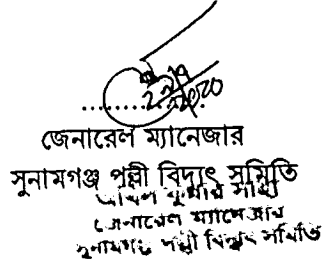 জেনারেল ম্যানেজার
সুনামগঞ্জ পল্লী বিদ্যুৎ সমিতি
কুমার সাহা
জেনারেল ম্যানেজার
সুনামগঞ্জ পল্লী বিদ্যুৎ সমিতি